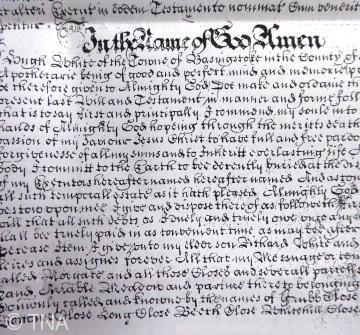 alter Executr in eodem Testamento nominat Sum venerit
petitur
In the Name of God Amen
I Hugh White of the Towne of Basingstoke in the County of
Apothecarie being of good and perfect mind and memorie
be therefore given to Almighty God Doe make and ordaine this
present last Will and Testament in manner and forme foll
that is to say first and principally I commend my soule into
hands of Almighty God hopeing through the meritts death
passion of my Saviour Jesus Christ to have full and free pardon
forgivenesse of all my sinns and to Inheritt everlasting life
Body I committ to the Earth to be decently buried at the
of my Executors hereafter named And as touch
all such temporall estate as it hath pleased Almighty God
bestow upon mee I give and dispose thereof as followeth first
will that all such debts as I duely and truely owe
shall bee truely paid in as convenient time as may bee after
decease Item I give unto my elder son Richard White and
heires and assignes forever All that my Messuage or
called Norgate and all those Closes and severall parcells
and Arrable Meadow and pasture there to belonging
comonly called and knowne by the names of Grubb Close
Close Close Long Close Beech Close Whitehill Close
© TNA